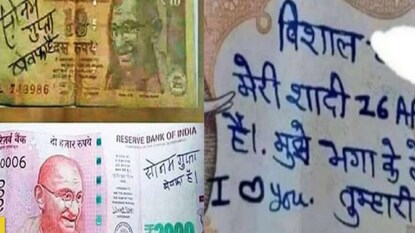 सोनम
गुप्ता
बेवफा
दस रुपये
743986
रिज़र्व बैंक
दो हजार रुपये
RESERVE BANK OF INDIA
0006
सोनम गुप्ता
बेवफा है।
2000
विशाल
मेरी शादी 26 A
है। मुझे भगा के
I ♡ you. तुम्हारी